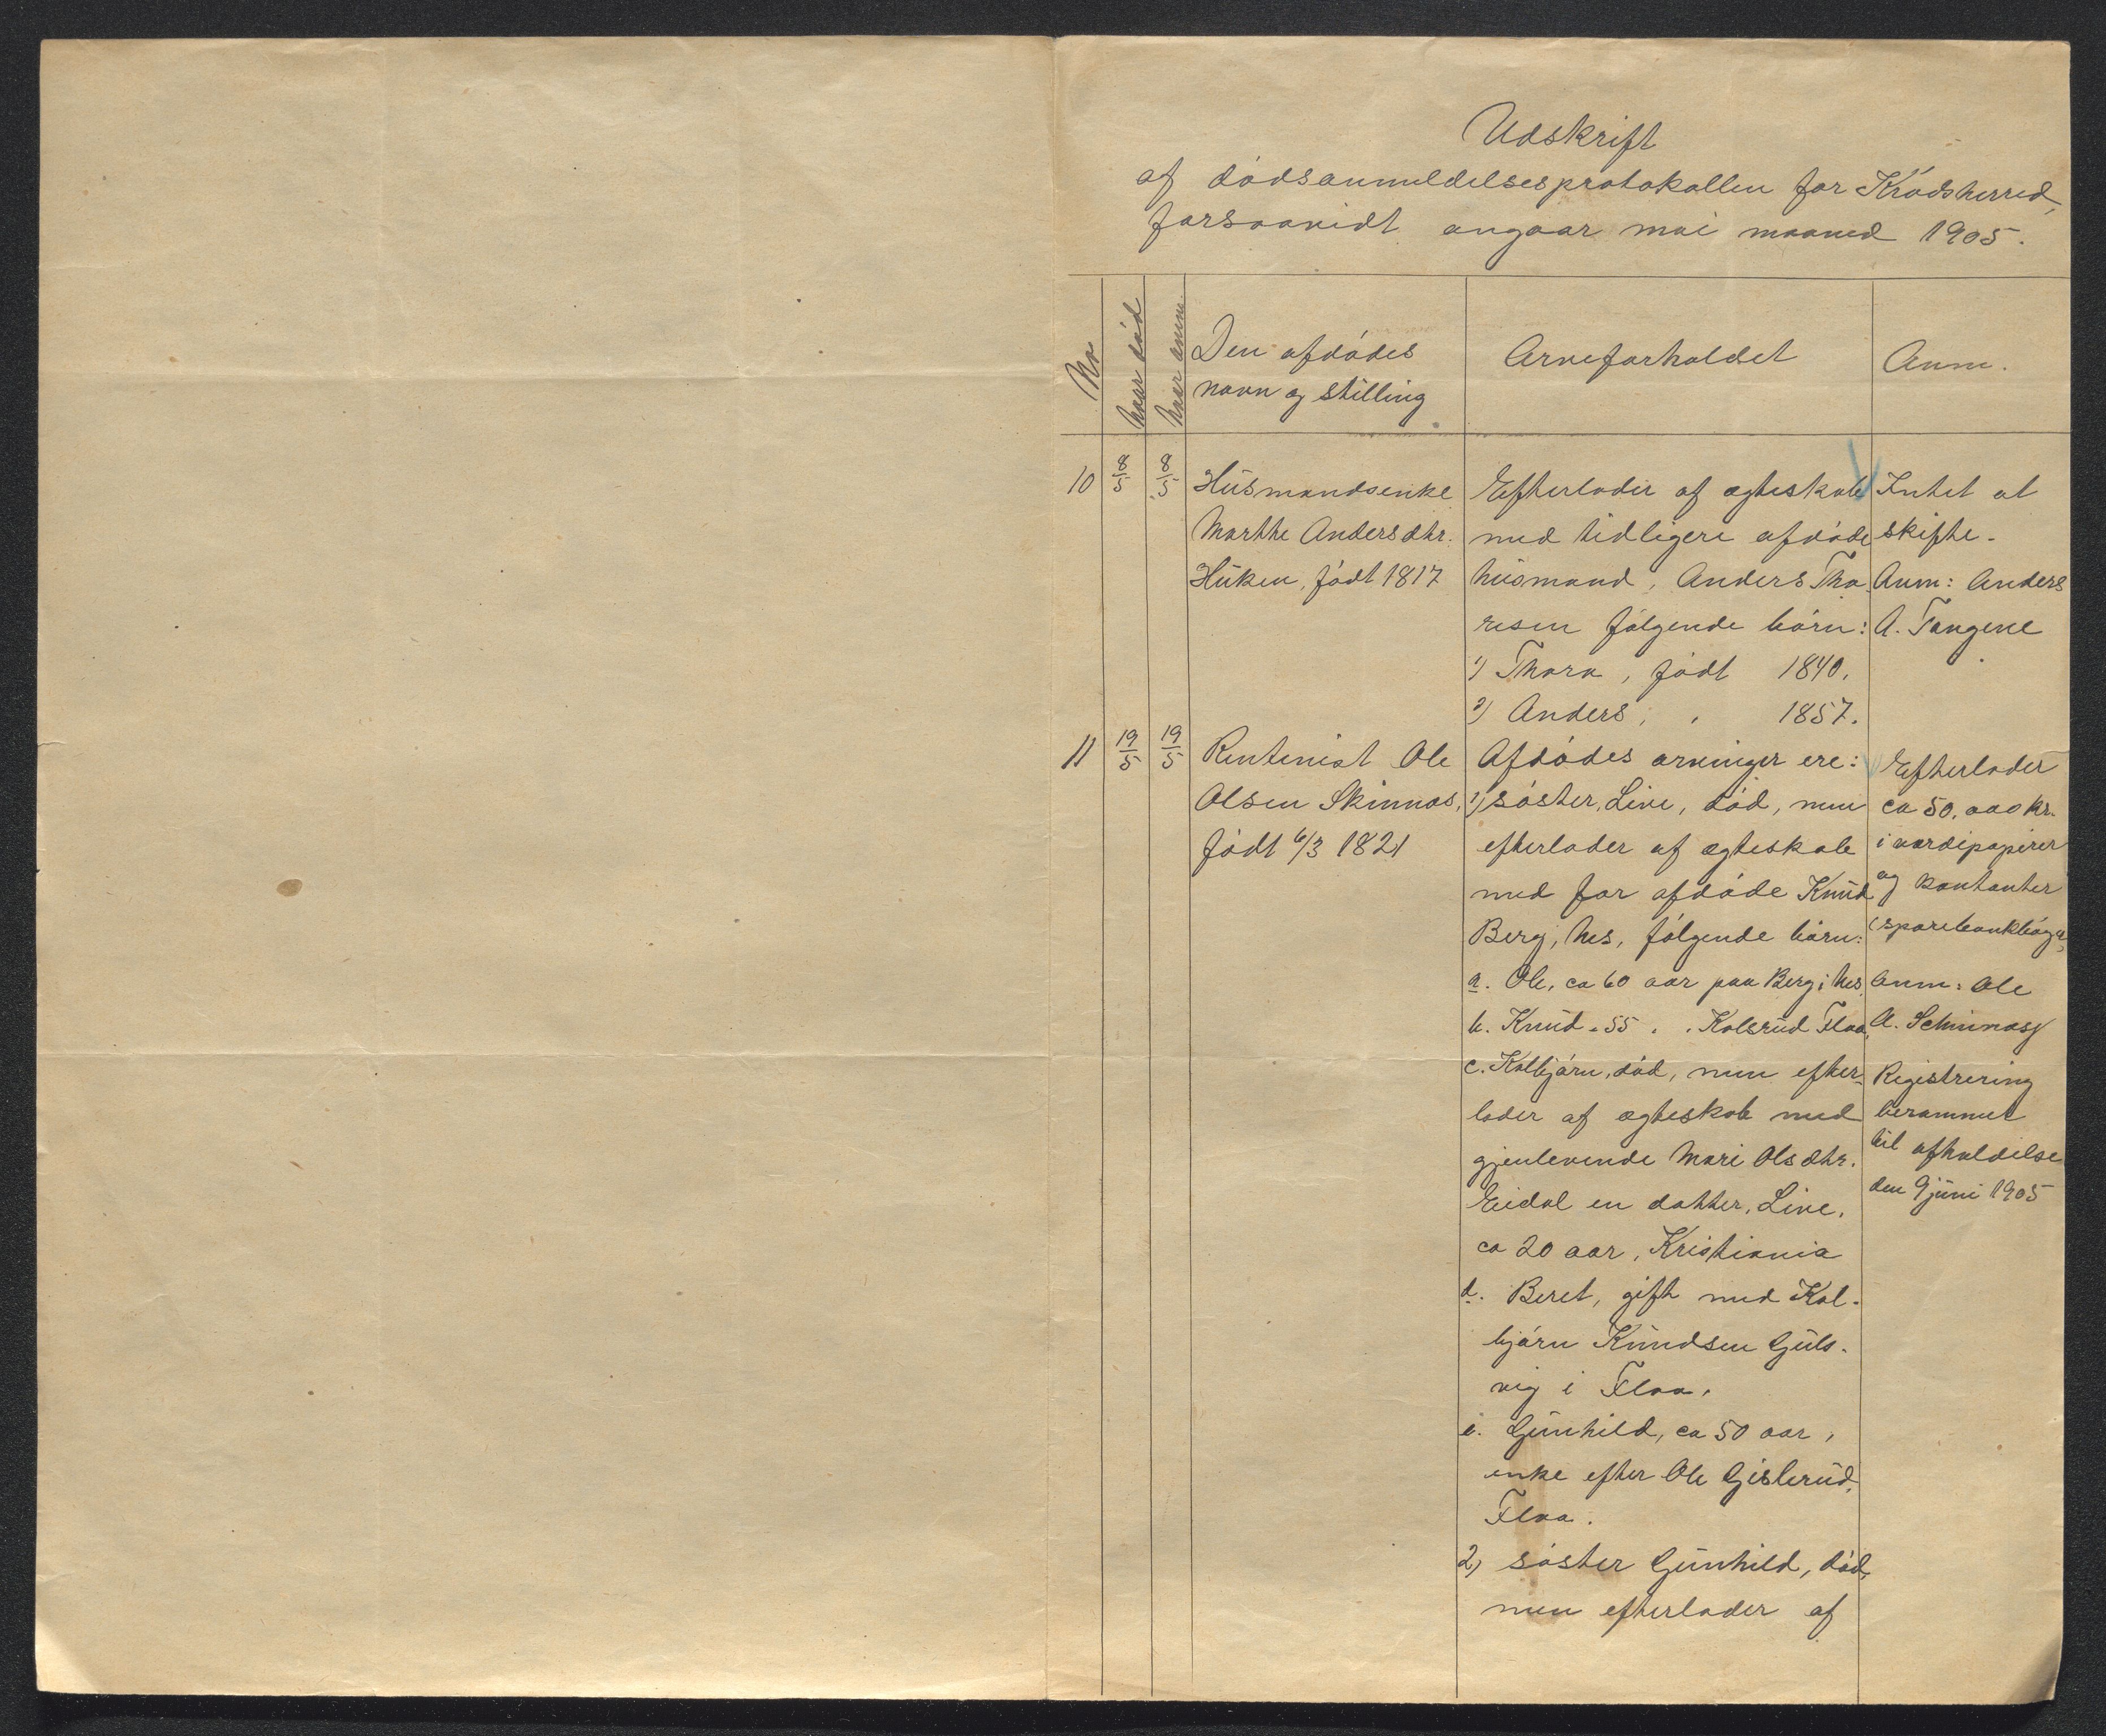 Udskrift
af dødsanmeldelsesprotokollen for Krødsherred,
forsaavidt angaar mai maaned 1905.
No
Naar død
Naar anm.
Den afdødes
navn og stilling
Arveforholdet
Anm.
10
8/5
8/5
Husmandsenke
Marthe Andersdtr.
Huken, født 1817
Efterlader af ægteskab
med tidligere afdøde
husmand, Anders Tho
resen følgende børn:
1) Thora, født 1840.
2) Anders, " 1857.
Intet at
skifte.
Anm: Anders
A. Tangene
11
19/5
19/5
Rentenist Ole
Olsen Skinnes,
født 6/3 1821
Afdødes arvinger ere:
1) søster, Live, død, men
efterlader af ægteskab
med før afdøde Knud
Berg, Nes, følgende børn:
a. Ole, ca 60 aar paa Berg i Nes,
b. Knud " 55 " " Kolsrud Flaa,
c. Kolbjørn, død, men efter-
lader af ægteskab med
gjenlevende Mari Olsdtr.
Eidal en datter, Live,
ca 20 aar, Kristiania
d. Beret, gift med Kol-
bjørn Knudsen Guls-
vig i Flaa,
e. Gunhild, ca 50 aar,
enke efter Ole Gislerud,
Flaa.
2) søster Gunhild, død,
men efterlader af
Efterlader
ca 50.000 kr.
i værdipapirer
og kontanter
(sparebankbøger)
Anm: Ole
A.
Registrering
berammet
til afholdelse
den 9 juni 1905